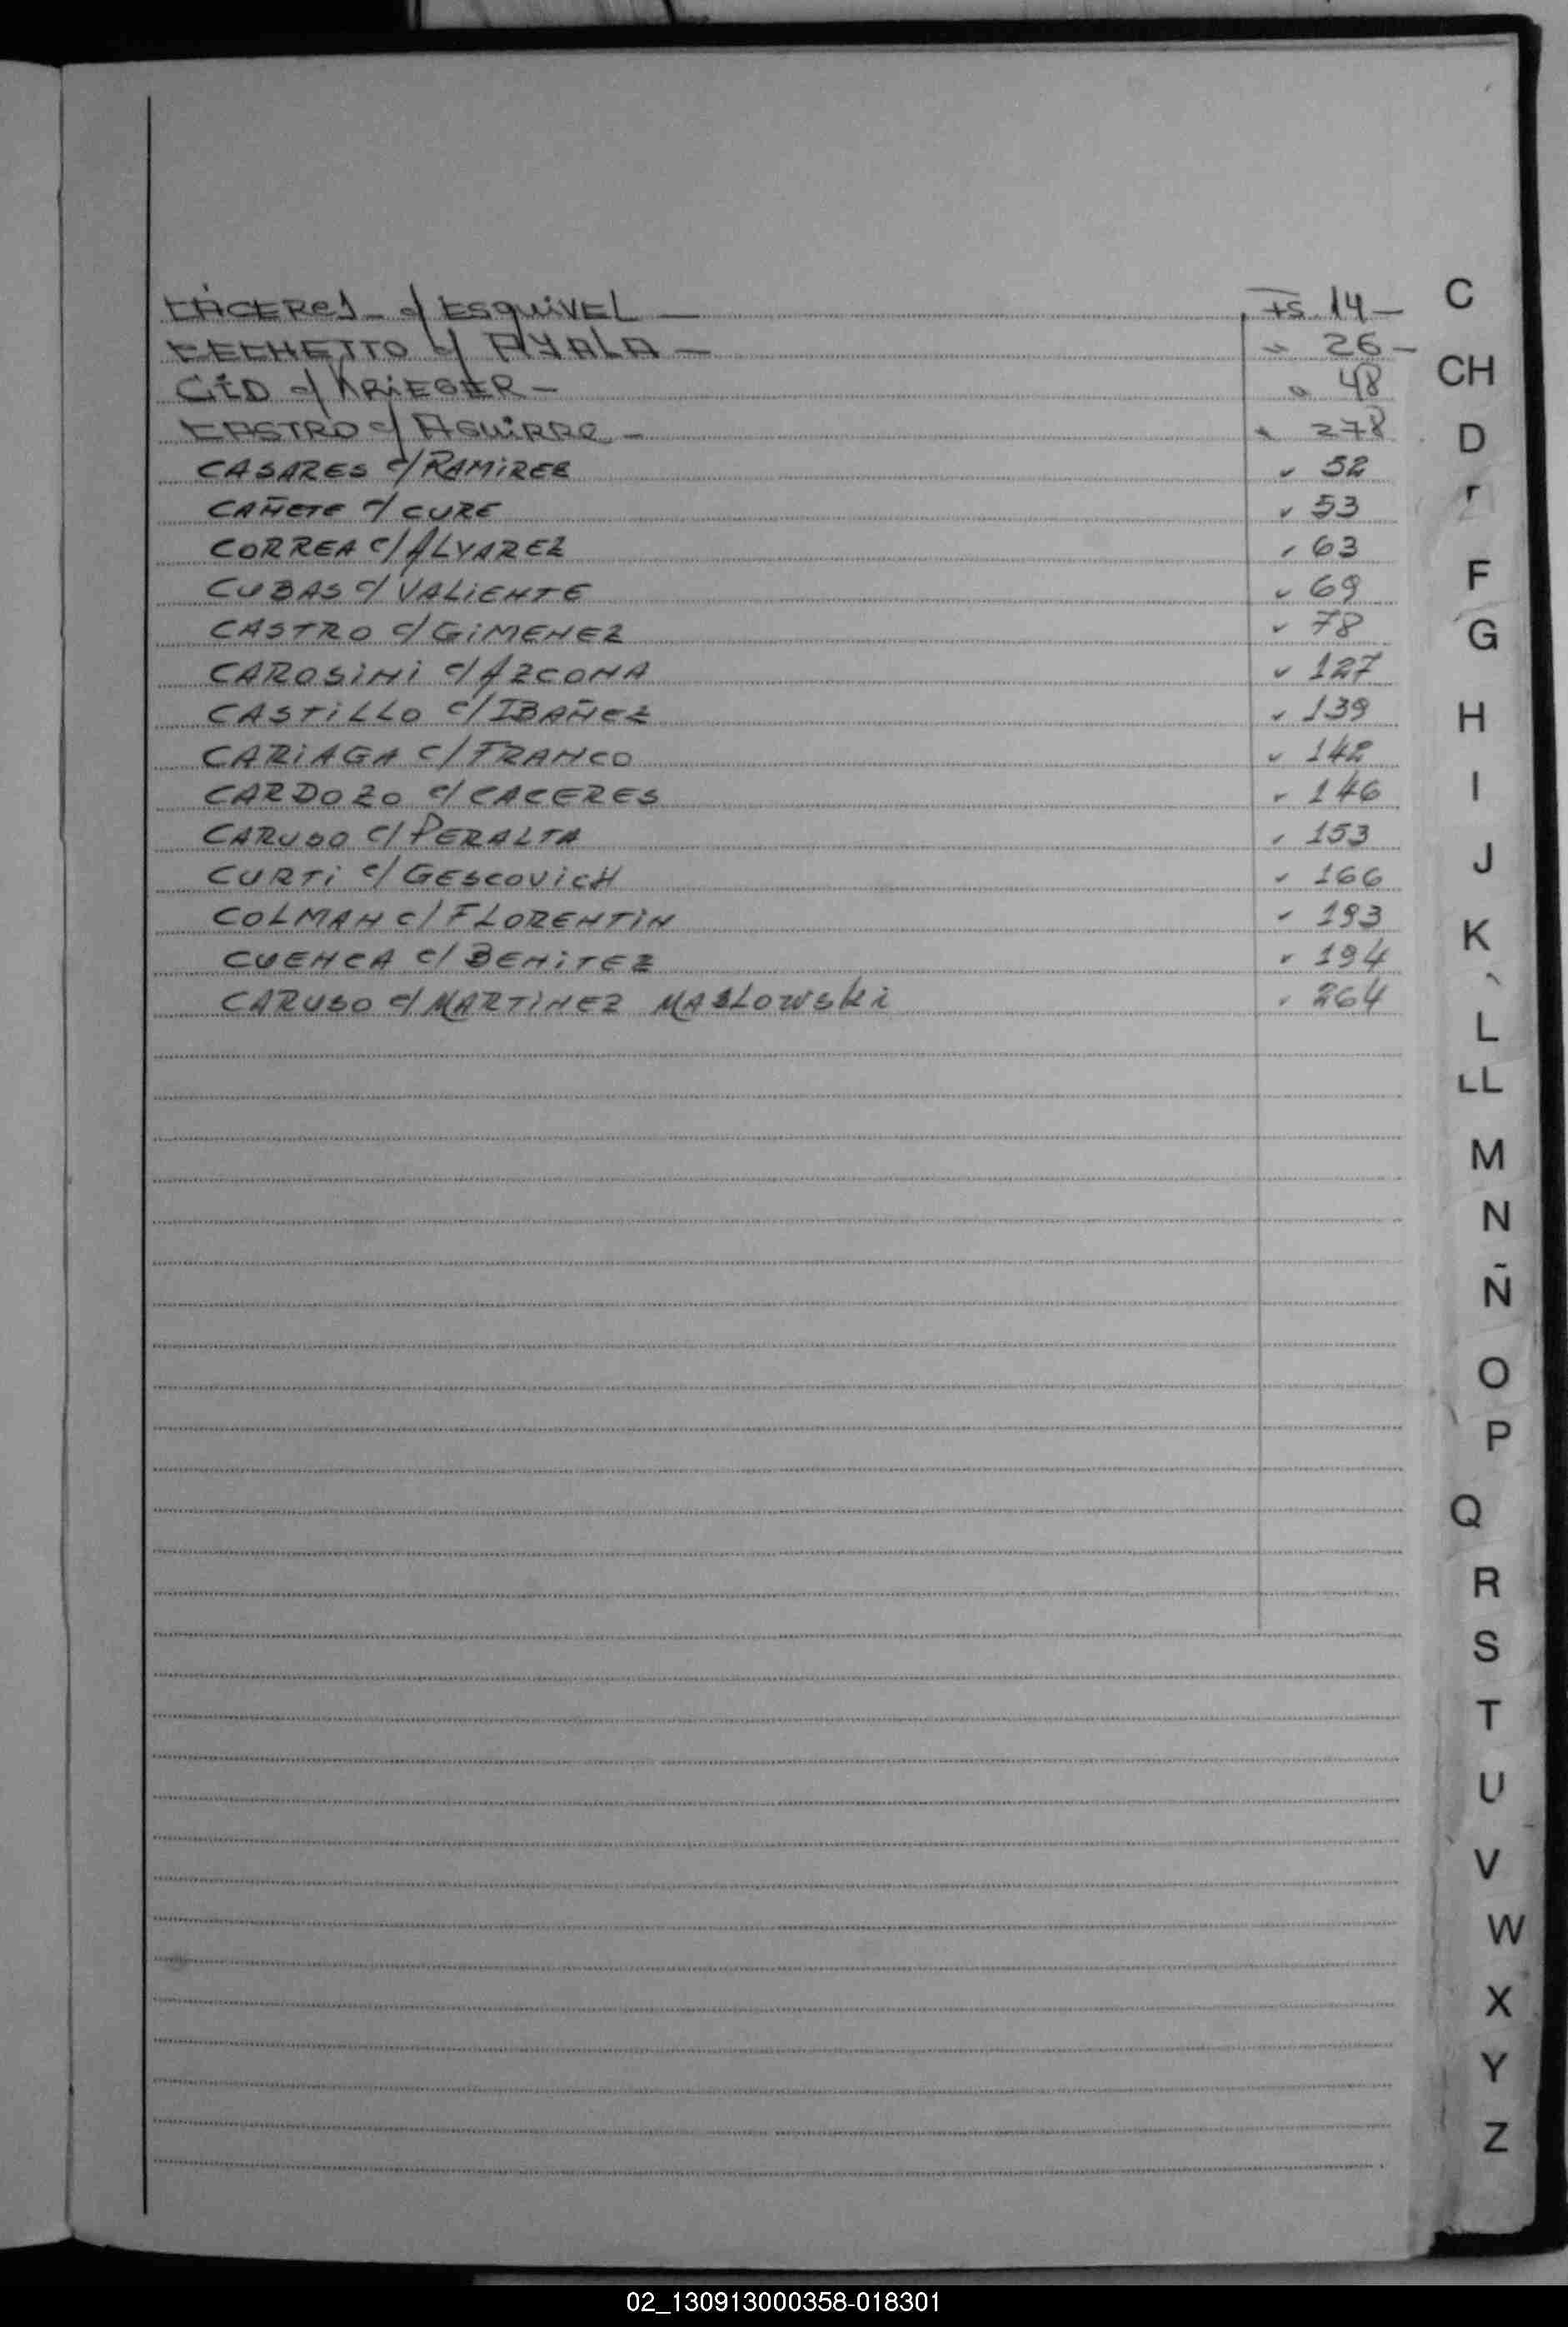 CÁCERES - c/ ESQUIVEL — Fs. 14 —
CECHETTO c/ AYALA — " 26 —
CID c/ KRIEGER — " 48
CASTRO c/ AGUIRRE — " 278
CASARES c/ RAMIREZ " 52
CAÑETE c/ CURE " 53
CORREA c/ ALVAREZ " 63
CUBAS c/ VALIENTE " 69
CASTRO c/ GIMENEZ " 78
CAROSINI c/ AZCONA " 127
CASTILLO c/ IBAÑEZ " 139
CARIAGA c/ FRANCO " 142
CARDOZO c/ CACERES " 146
CARUSO c/ PERALTA " 153
CURTI c/ GESCOVICH " 166
COLMAN c/ FLORENTIN " 193
CUENCA c/ BENITEZ " 194
CARUSO c/ MARTINEZ MASLOWSKI " 264
C
CH
D
F
G
H
I
J
K
L
LL
M
N
Ñ
O
P
Q
R
S
T
U
V
W
X
Y
Z
02_130913000358-018301